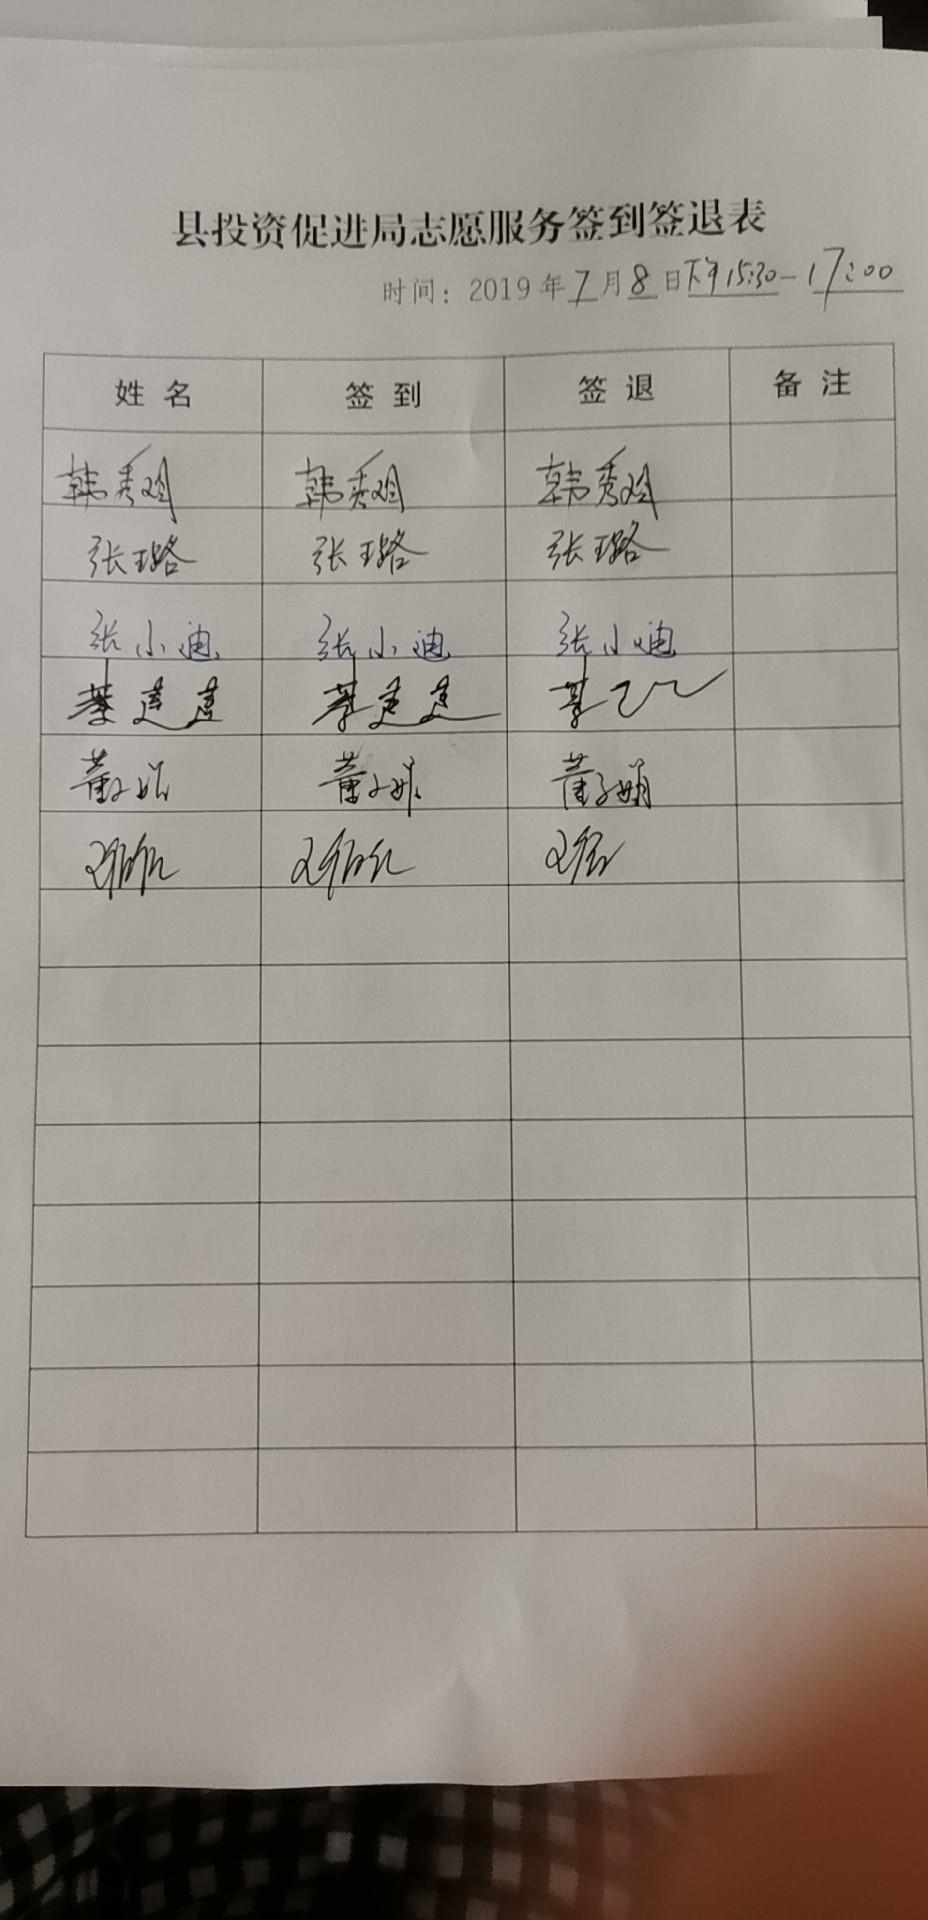 县投资促进局志愿服务签到签退表
时间：2019年7月8日下午15:30-17:00
姓名 签到 签退 备注
韩秀娟 韩秀娟 韩秀娟
张璐 张璐 张璐
张小迪 张小迪 张小迪
董 董 董子娟